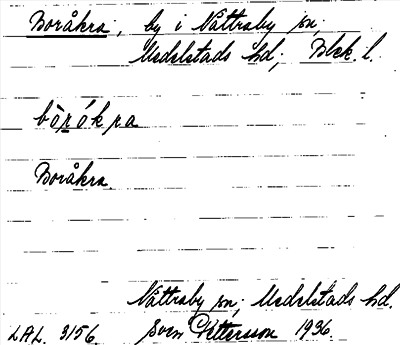 Boråkra, by i Nättraby sn,
Medelstads hd; Blek. l.
bòrókra
Boråkra.
Nättraby sn; Medelstads hd.
LAL. 3156. Sven Pettersson 1936.